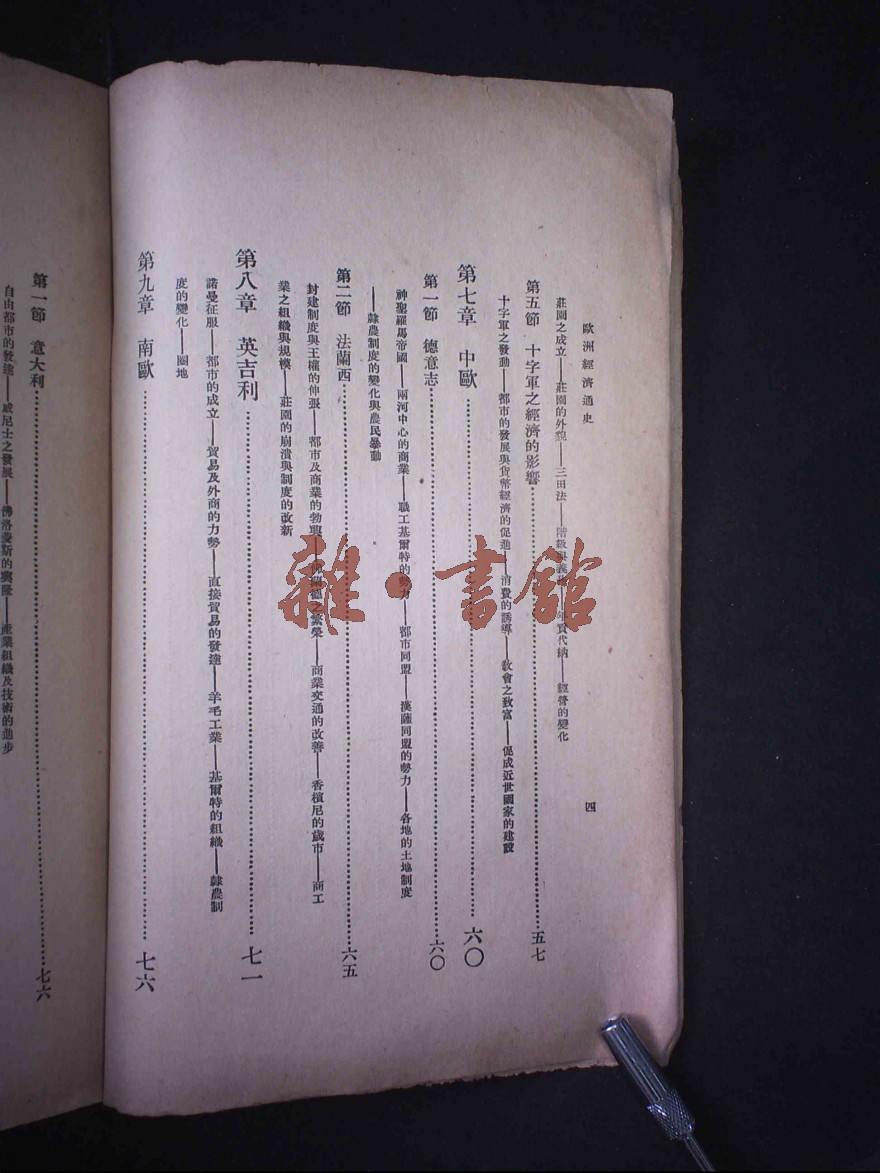 歐洲經濟通史
四
莊園之成立——莊園的外貌——三田法——階級與義務——年貢代納——經營的變化
第五節　十字軍之經濟的影響……五七
十字軍之發動——都市的發展與貨幣經濟的促進——消費的誘導——教會之致富——促成近世國家的建設
第七章　中歐……六〇
第一節　德意志……六〇
神聖羅馬帝國——兩河中心的商業——職工基爾特的勢力——都市同盟——漢薩同盟的勢力——各地的土地制度
——隸農制度的變化與農民暴動
第二節　法蘭西……六五
封建制度與王權的伸張——都市及商業的勃興——佛蘭德之繁榮——商業交通的改善——香檳尼的歲市——商工
業之組織與規模——莊園的崩潰與制度的改新
第八章　英吉利……七一
諾曼征服——都市的成立——貿易及外商的力勢——直接貿易的發達——羊毛工業——基爾特的組織——隸農制
度的變化——圈地
第九章　南歐……七六
第一節　意大利……七六
自由都市的發達——威尼士之發展——佛洛稜斯的興隆——產業組織及技術的進步
雜·書館